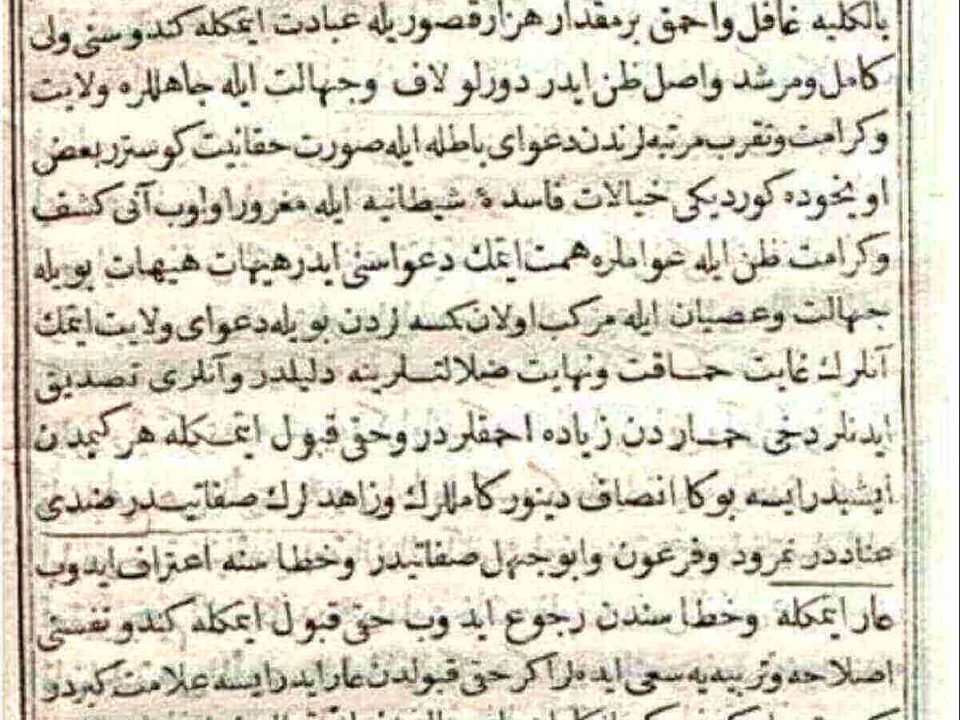 بالكليه غافل واحمق برمقدار هزار قصور يله عبادت ايتمكله كندوسنى ولى
كامل ومرشد واصل ظن ايدر دورلو لاف وجهالت ايله جاهللره ولايت
وكرامت وتقرب مرتبه لرندن دعواى باطله ايله صورت حقانيت كوسترر بعض
اويخوده كورديكى خيالات فاسدهٔ شيطانيه ايله مغرور اولوب آنى كشف
وكرامت ظن ايله عواملره همت ايتمك دعواسنى ايدر هيهات هيهات بويله
جهالت وعصيان ايله مركب اولان كسه لردن بويله دعواى ولايت ايتمك
آنلرك غايت حماقت ونهايت ضلالتلرينه دليلدر وآنلرى تصديق
ايدنلر دخى حماردن زياده احمقلردر وحق قبول ايتمكله هر كيمدن
ايشيدرايسه بوكا انصاف دينور كاملرك وزاهدلرك صفاتيدر ضدى
عناددر نمرود وفرعون وابوجهل صفاتيدر وخطا سنه اعتراف ايدوب
عار ايتمكله وخطا سندن رجوع ايدوب حق قبول ايتمكله كندو نفسنى
اصلاحه وتربيه يه سعى ايده لر اكر حق قبولدن عار ايدرايسه علامت كبردو